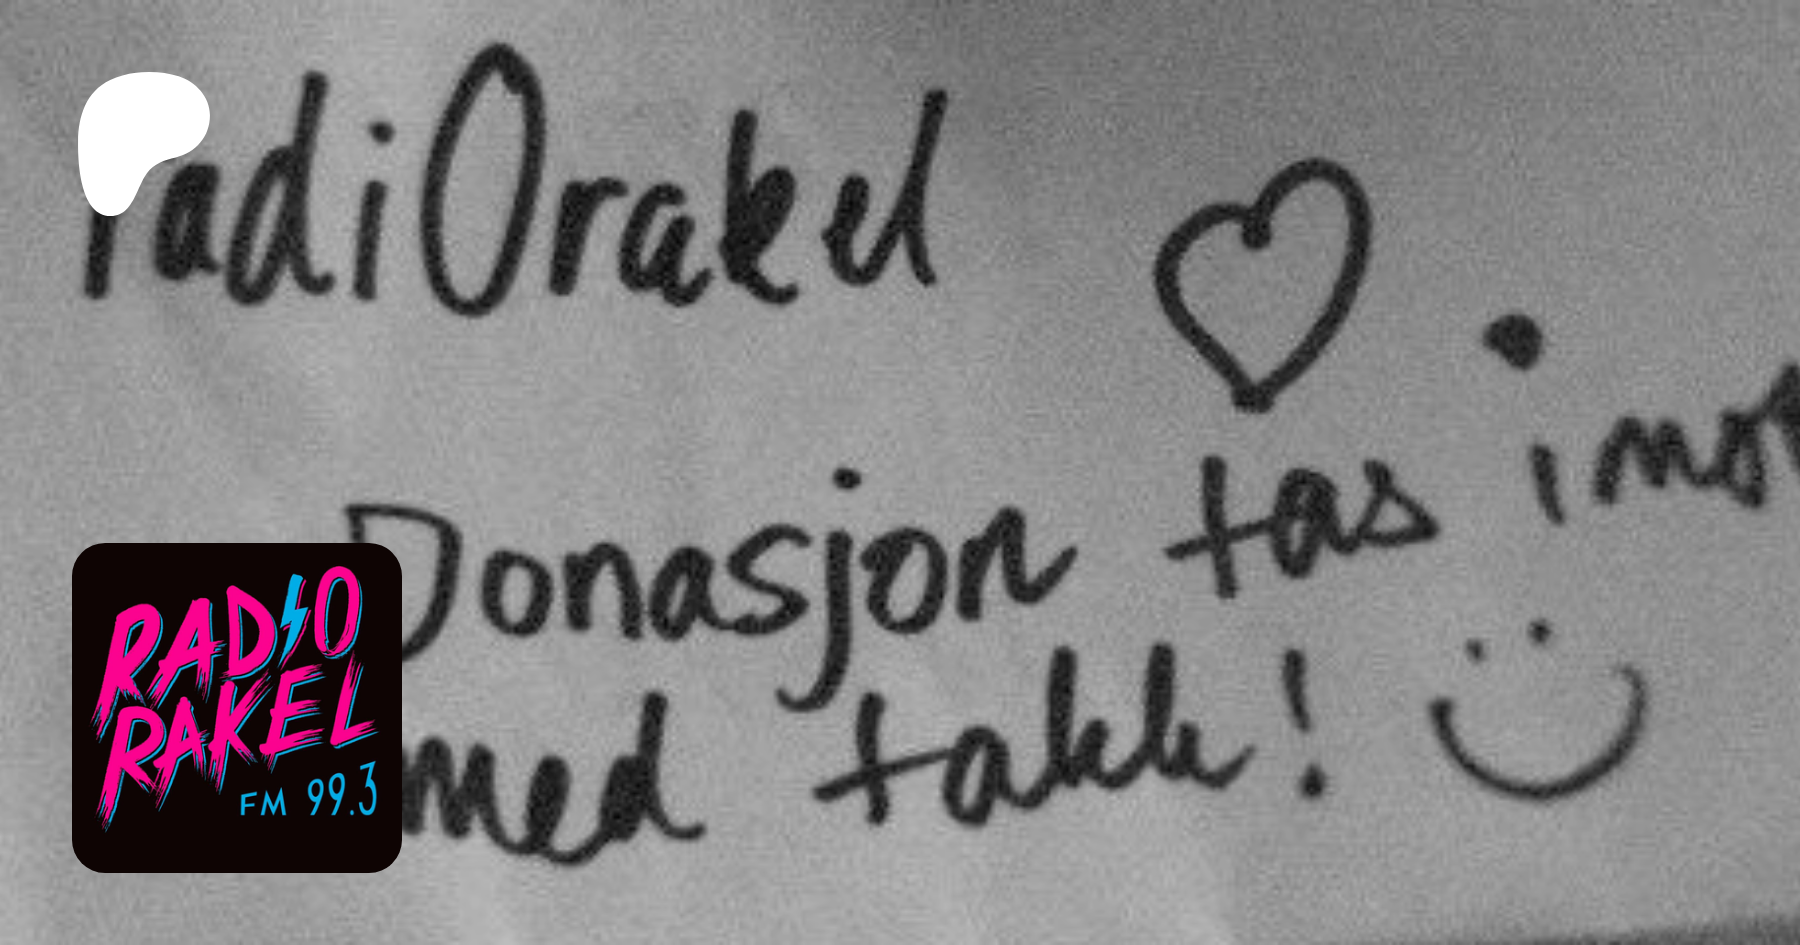 radiOrakel
Donasjon tas
med takk!
RADIO
RAKEL
FM 99.3